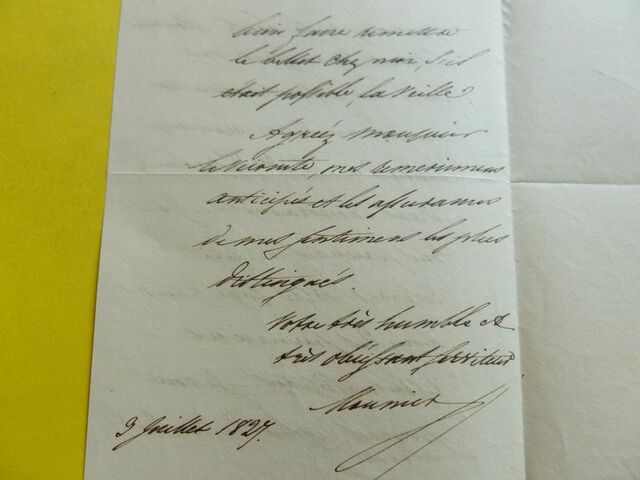 bien faire remettre
le billet chez moi, s'il
était possible, la veille
Agréez monsieur
le Vicomte, mes remerciemens
anticipés et les assurances
de mes sentimens les plus
distingués.
Votre très humble et
très obéissant serviteur
Mounier
3 Juillet 1827.